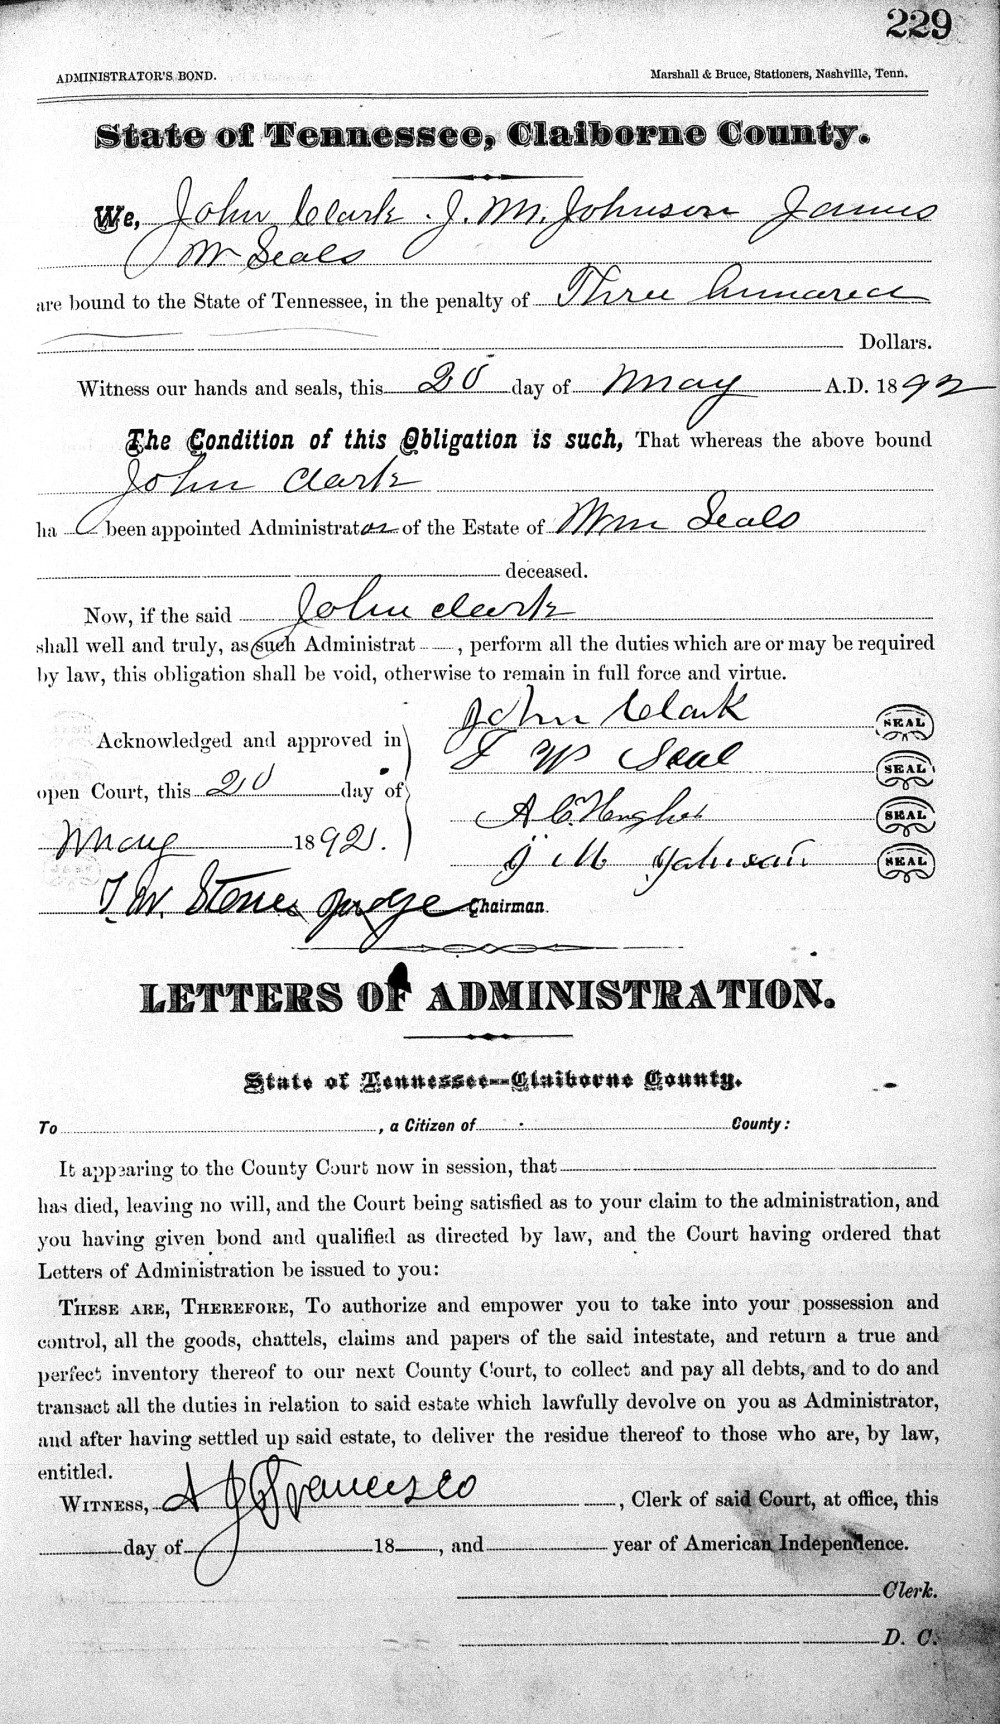 229
ADMINISTRATOR'S BOND. Marshall & Bruce, Stationers, Nashville, Tenn.
State of Tennessee, Claiborne County.
We, John Clark. J. M. Johnson James
W Seals
are bound to the State of Tennessee, in the penalty of Three hundred
Dollars.
Witness our hands and seals, this 20 day of May A.D. 1892
The Condition of this Obligation is such, That whereas the above bound
John Clark
ha been appointed Administrator of the Estate of Wm Seals
deceased.
Now, if the said John Clark
shall well and truly, as such Administrat , perform all the duties which are or may be required
by law, this obligation shall be void, otherwise to remain in full force and virtue.
John Clark SEAL
Acknowledged and approved in
J W Seal SEAL
open Court, this 20 day of
A C. Hughes SEAL
May 1892.
J M Johnson SEAL
T. W. Stone Judge Chairman.
LETTERS OF ADMINISTRATION.
State of Tennessee--Claiborne County.
To , a Citizen of County:
It appearing to the County Court now in session, that
has died, leaving no will, and the Court being satisfied as to your claim to the administration, and
you having given bond and qualified as directed by law, and the Court having ordered that
Letters of Administration be issued to you:
THESE ARE, THEREFORE, To authorize and empower you to take into your possession and
control, all the goods, chattels, claims and papers of the said intestate, and return a true and
perfect inventory thereof to our next County Court, to collect and pay all debts, and to do and
transact all the duties in relation to said estate which lawfully devolve on you as Administrator,
and after having settled up said estate, to deliver the residue thereof to those who are, by law,
entitled.
WITNESS, Francisco , Clerk of said Court, at office, this
day of 18 , and year of American Independence.
Clerk.
D. C.